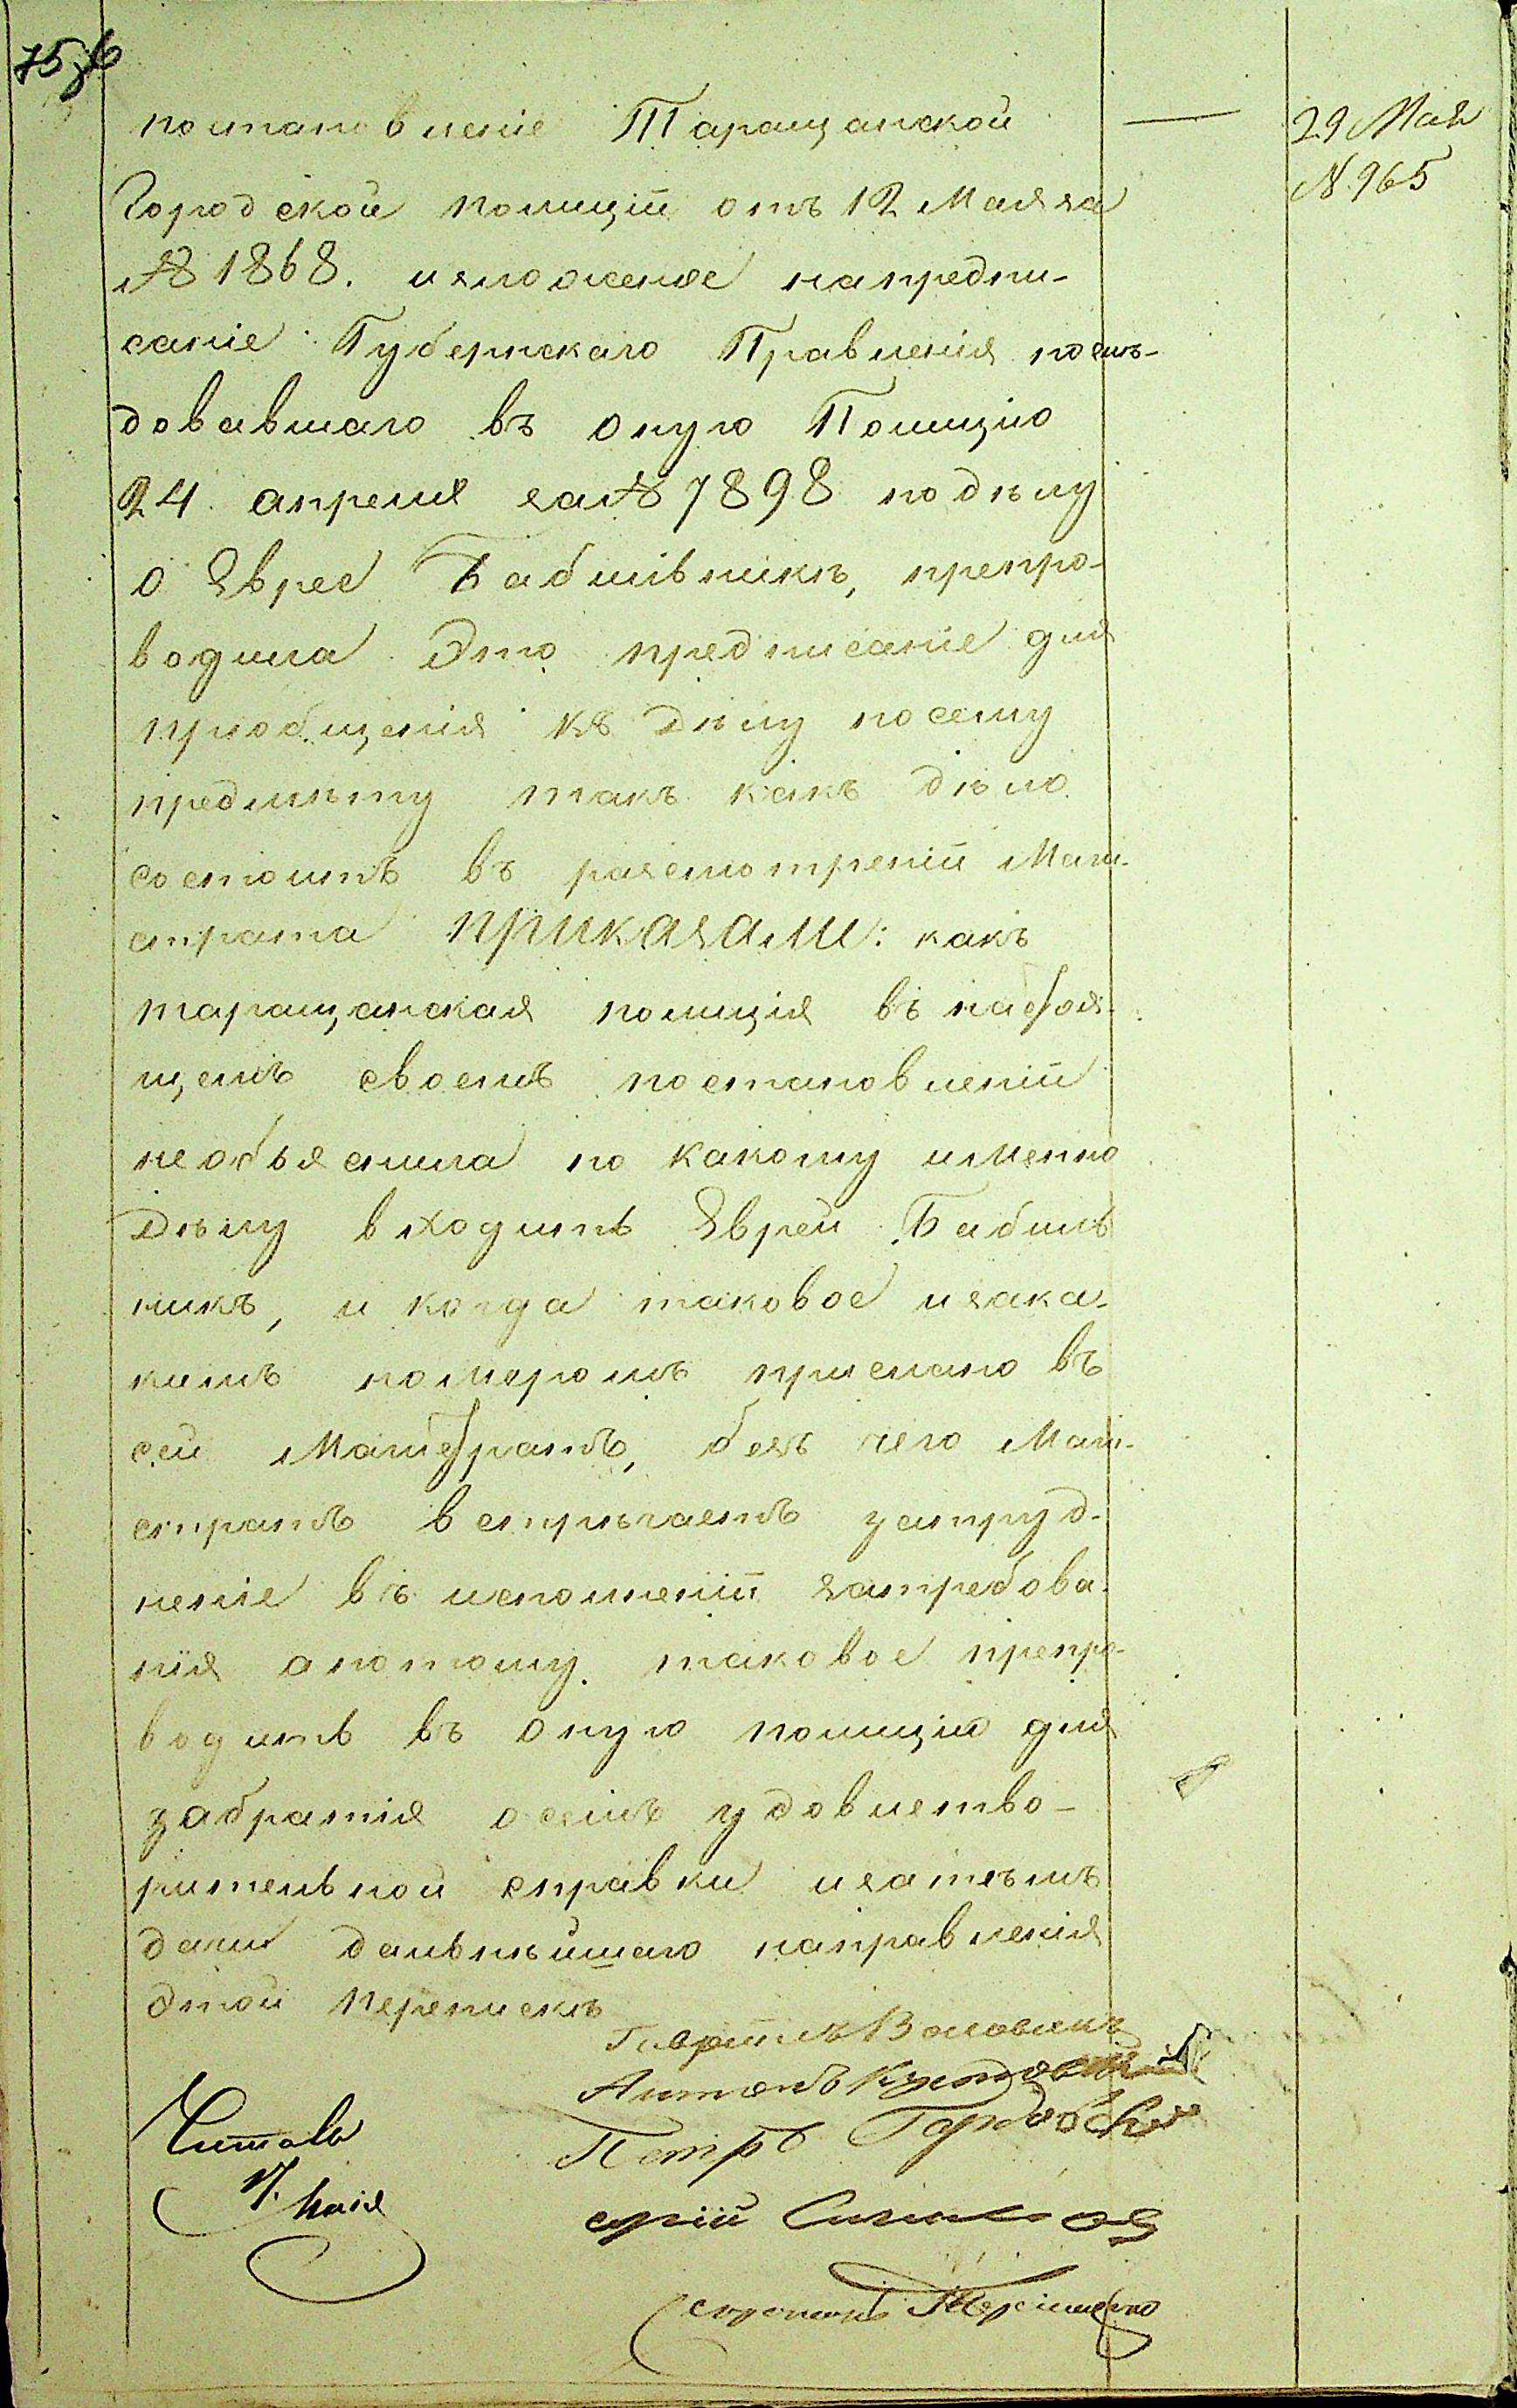 постановленіе Таращанской
Городской полиціи отъ 12 Мая за
№ 1868. изложеное на предпи-
саніе Губернскаго Правленія послѣ-
довавшаго въ оную Полицію
24 апреля за № 7898 по дѣлу
о Еврее Бабшівникѣ, препро-
водила Это предписаніе для
приобщенія къ Дѣлу по сему
предмѣту такъ какъ дѣло
состоитъ въ разсмотреніи Маги-
страта приказали: какъ
таращанская полиція въ настоя-
щемъ своемъ постановленіи
не объяснила по какому именно
Дѣлу входитъ Еврей Бабшив
никъ, и когда таковое и зака-
кимъ номеромъ прислано въ
сей Магистратъ, безъ чего Маги-
стратъ встрѣчаетъ затруд-
неніе въ исполненіи затребова-
нія а потому таковое препро-
водить въ оную полицію для
забратія о семъ удовлетво-
рительной справки и затемъ
дачи дальнѣйшаго направленія
этой перепискѣ
29 Мая
№ 965
Читалъ
Петръ